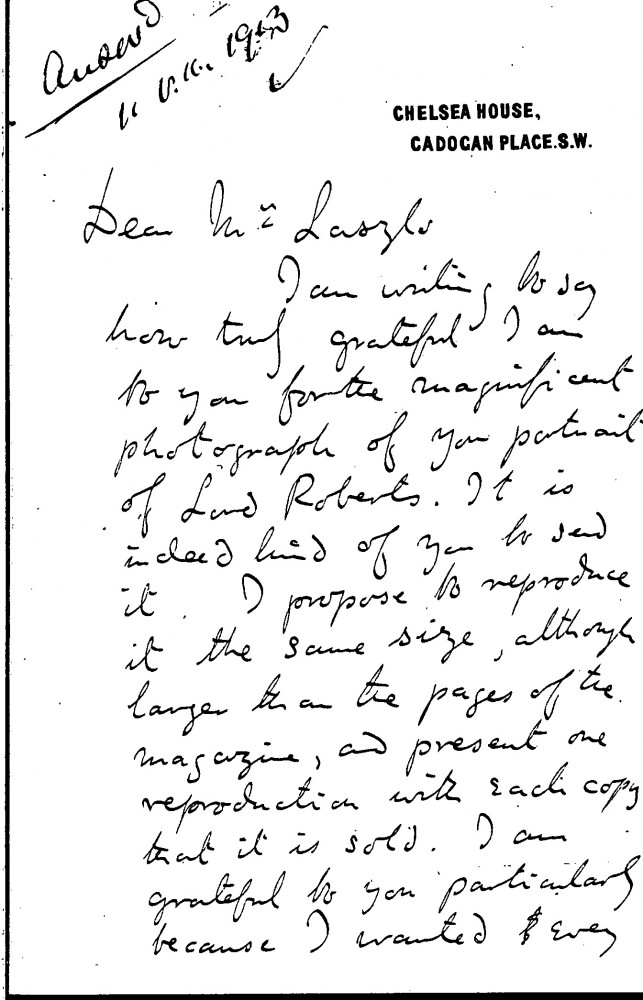 Answd
11 V.K. 1913
CHELSEA HOUSE,
CADOGAN PLACE.S.W.
Dear Mr Laszlo
I am writing to say
how truly grateful I am
to you for the magnificent
photograph of your portrait
of Lord Roberts. It is
indeed kind of you to send
it. I propose to reproduce
it the same size, although
larger than the pages of the
magazine, and present one
reproduction with each copy
that it is sold. I am
grateful to you particularly
because I wanted every